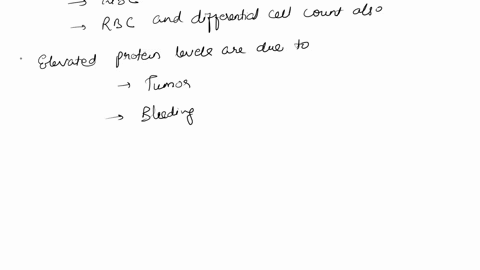 → RBC and differential cell count also
· Elevated protein levels are due to
→ Tumor
→ Bleeding